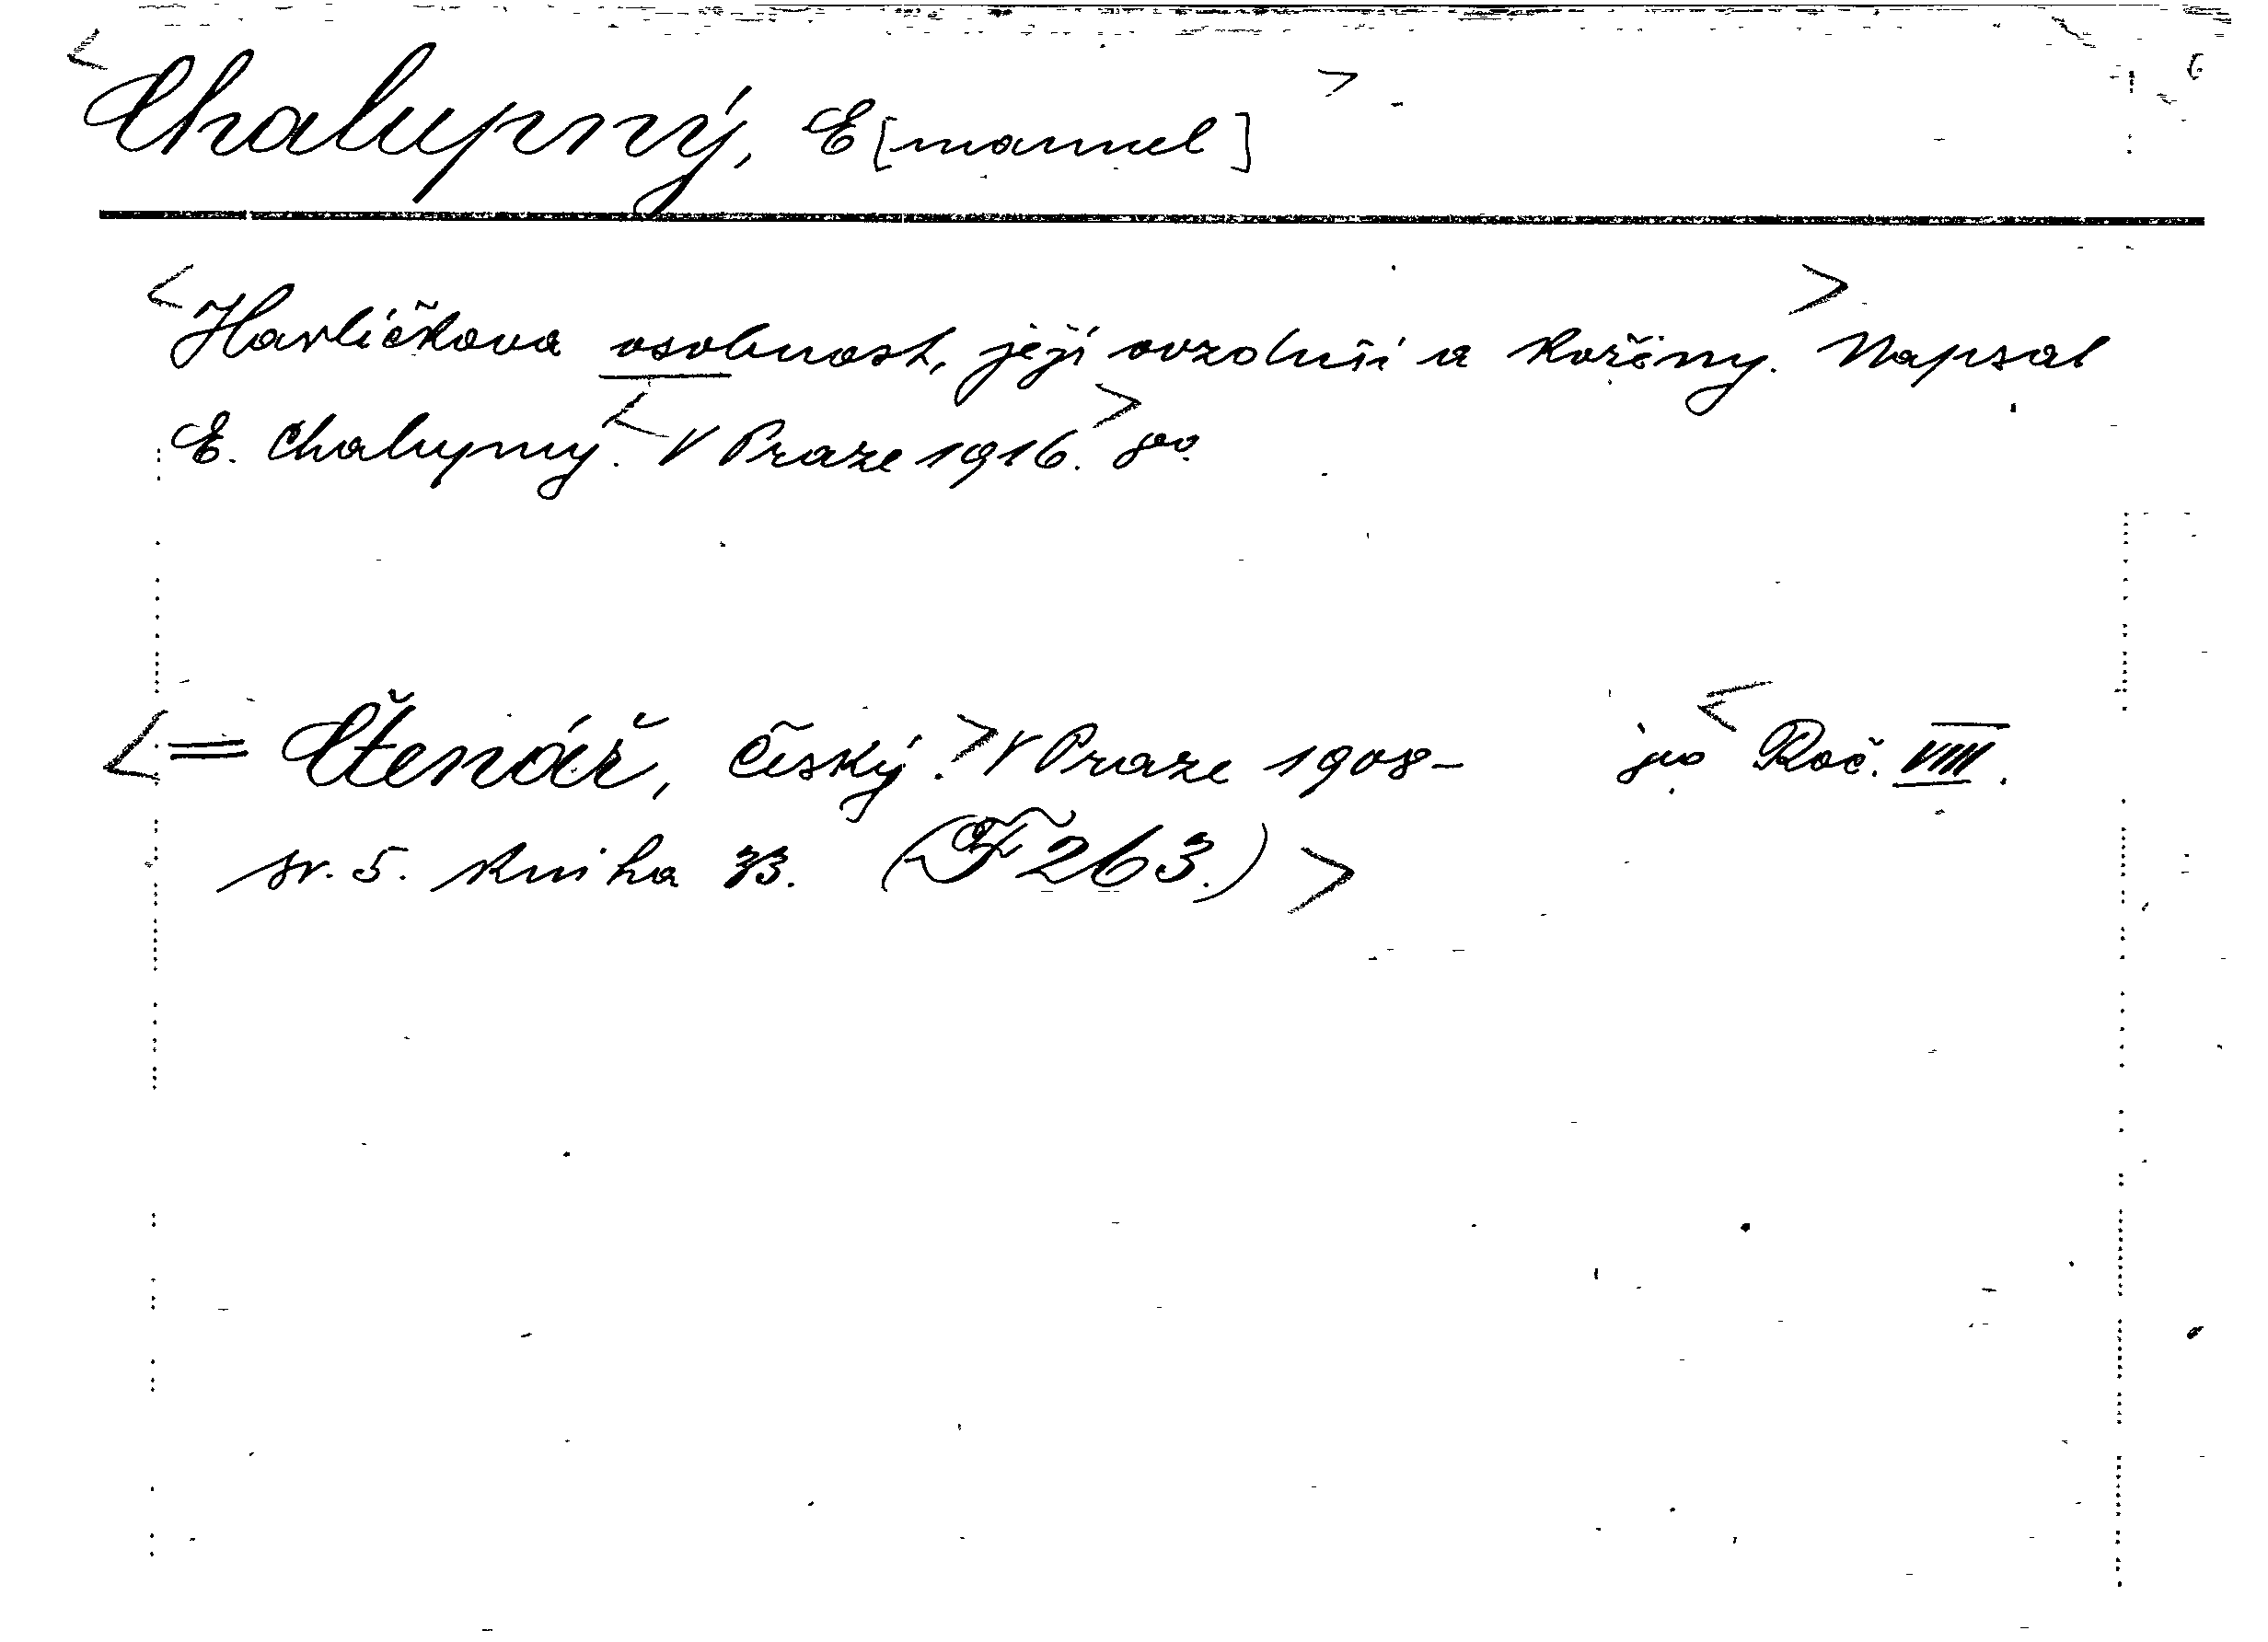 <Chalupný, E[manuel]>
<Havlíčkova osobnost, její ovzduší a kořeny.> Napsal
E. Chalupný. <V Praze 1916.> 8°.
<= Čtenář, Český.> V Praze 1908- 8° <Roč. VIII.
sv. 5. kniha 33. (F 263.)>